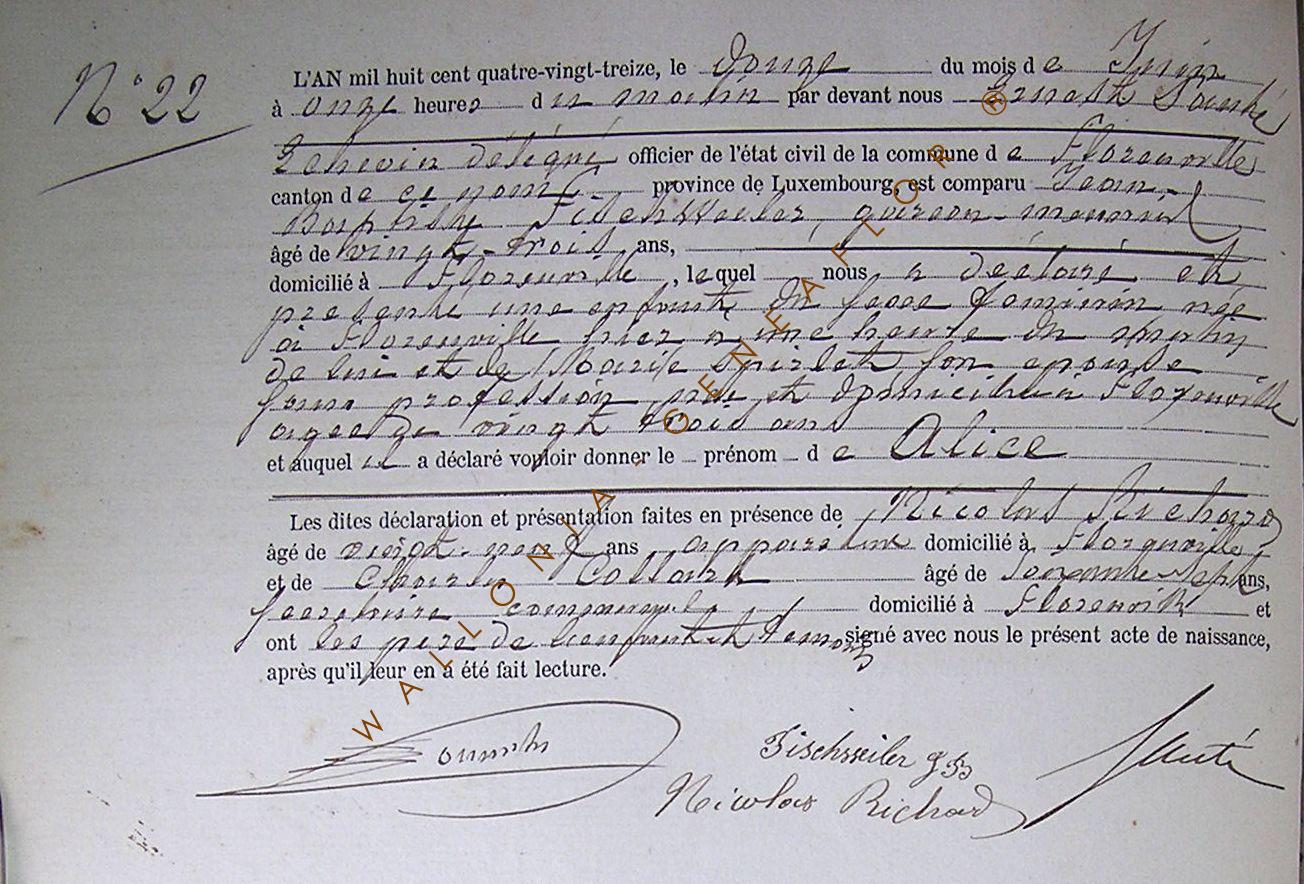 N° 22
L'AN mil huit cent quatre-vingt-treize, le douze du mois de Juin
à onze heures du matin par devant nous Ernest
Echevin délégué officier de l'état civil de la commune de Florenville
canton de ce nom province de Luxembourg, est comparu Jean-
Baptiste Fischweiler, garçon-meunier
âgé de vingt-trois ans,
domicilié à Florenville, lequel nous a déclaré et
présenté une enfant du sexe féminin née
à Florenville hier à une heure du matin
de lui et de Marie Spirlet son épouse
sans profession, née et domiciliée à Florenville
agée de vingt trois ans
et auquel il a déclaré vouloir donner le prénom de Alice
Les dites déclaration et présentation faites en présence de Nicolas Richard
âgé de vingt-neuf ans domicilié à Florenville,
et de Charles Collard âgé de soixante-sept ans,
Secrétaire communal, domicilié à Florenville et
ont les père de l'enfant et témoins signé avec nous le présent acte de naissance,
après qu'il leur en a été fait lecture.
Fischweiler
Nicolas Richard
WALLONIA-GENEAFLOR ®